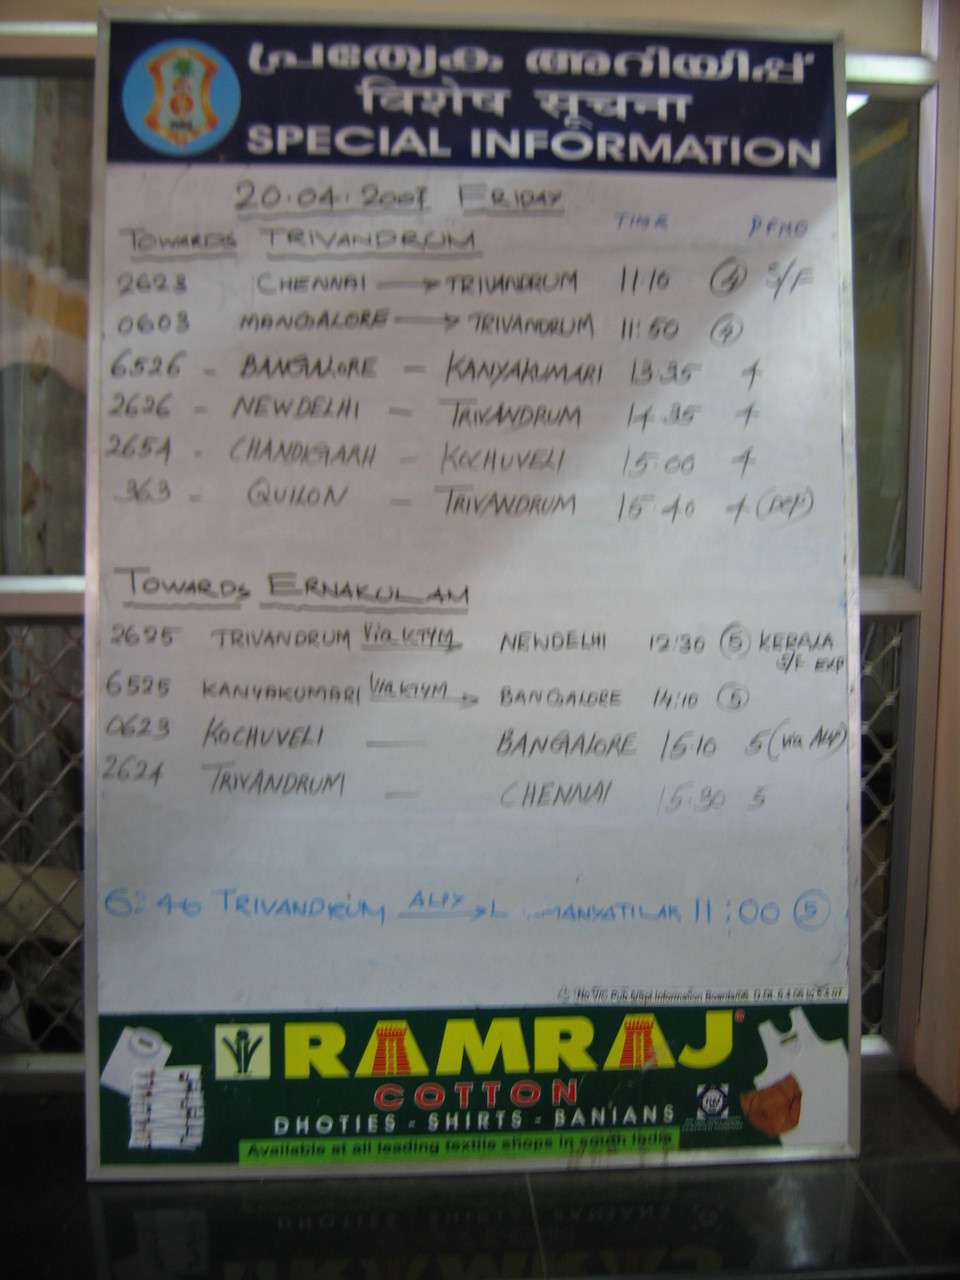 പ്രത്യേക അറിയിപ്പ്
विशेष सूचना
SPECIAL INFORMATION
20.04.2007 FRIDAY
TIME
TOWARDS TRIVANDRUM
2623 CHENNAI → TRIVANDRUM 11.10 4 S/F
0603 MANGALORE → TRIVANDRUM 11:50 4
6526 - BANGALORE - KANYAKUMARI 13.35 4
2626 - NEWDELHI - TRIVANDRUM 14.35 4
2654 - CHANDIGARH - KOCHUVELI 15.00 4
363 - QUILON - TRIVANDRUM 15.40 4 (DEP)
TOWARDS ERNAKULAM
2625 TRIVANDRUM Via KTYM NEWDELHI 12:30 5 KERALA
S/F EXP
6525 KANYAKUMARI Via KTYM → BANGALORE 14:10 5
0623 KOCHUVELI - BANGALORE 15.10 5 (via ALLP)
2624 TRIVANDRUM - CHENNAI 15.30 5
TRIVANDRUM 11:00 5
RAMRAJ
COTTON
DHOTIES - SHIRTS - BANIANS
Available at all leading textile shops in south India